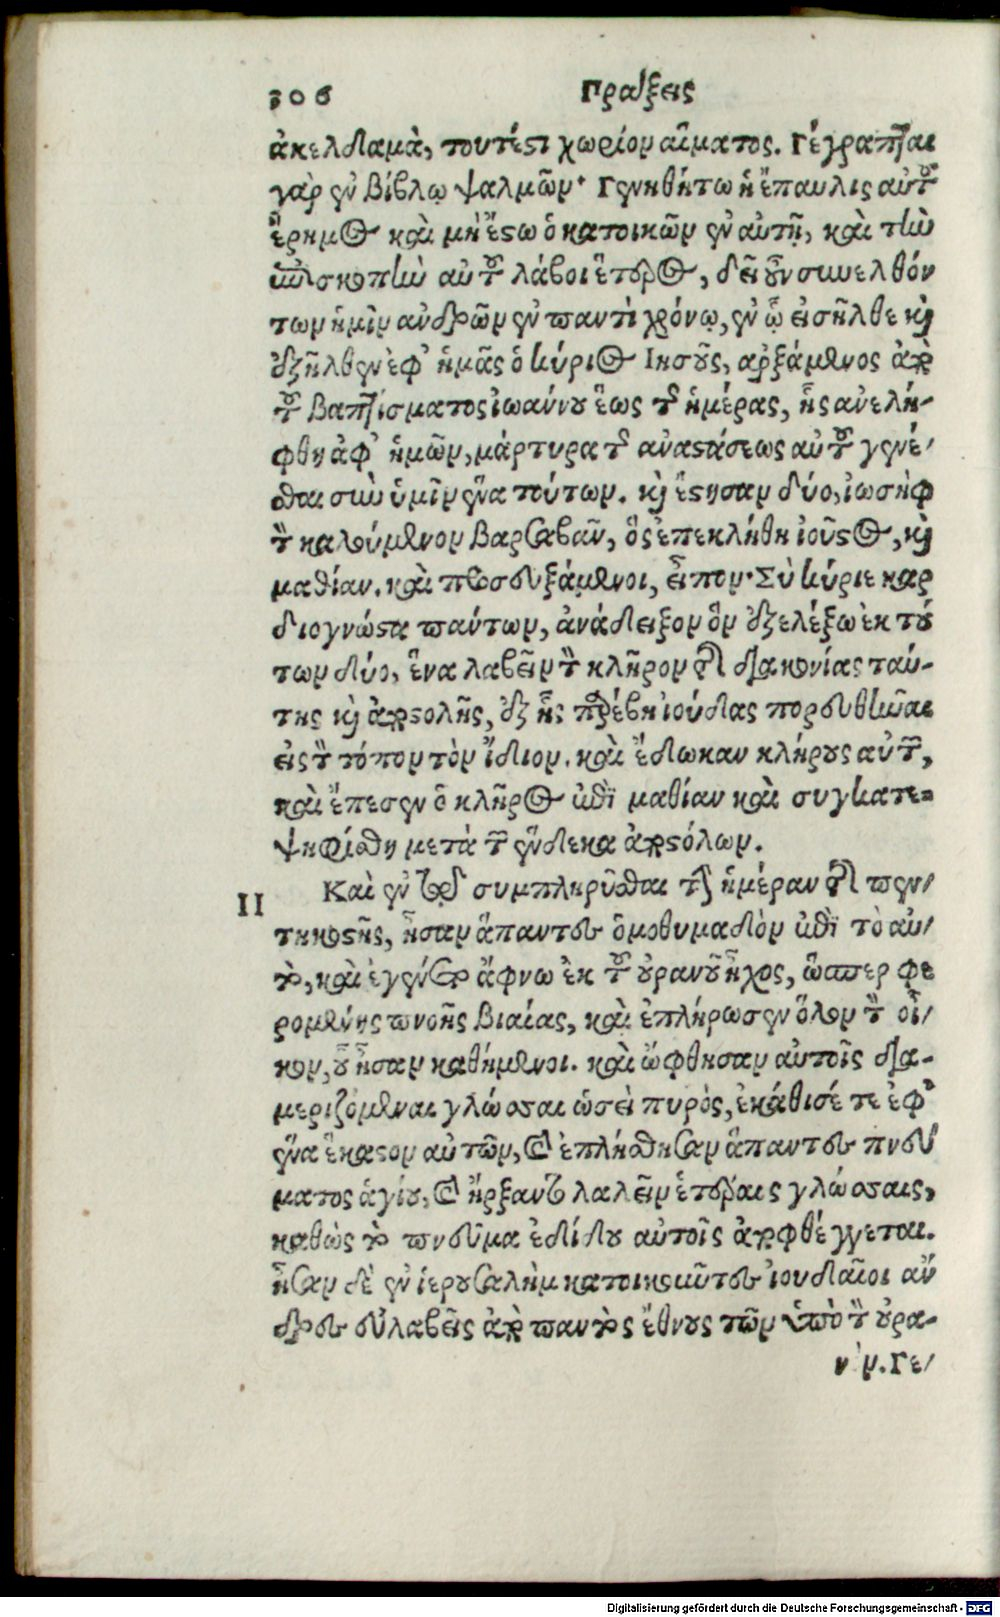 306 Πράξεις
ἀκελδαμὰ, τουτέστι χωρίον αἵματος. Γέγραπται
γὰρ ἐν βίβλῳ ψαλμῶν· Γενηθήτω ἡ ἔπαυλις αὐτοῦ
ἔρημος καὶ μὴ ἔστω ὁ κατοικῶν ἐν αὐτῇ, καὶ τὴν
ἐπισκοπὴν αὐτοῦ λάβοι ἕτερος, δεῖ οὖν συνελθόν
των ἡμῖν ἀνδρῶν ἐν παντὶ χρόνῳ, ἐν ᾧ εἰσῆλθε καὶ
ἐξῆλθεν ἐφ' ἡμᾶς ὁ κύριος Ιησοῦς, ἀρξάμενος ἀπὸ
τοῦ βαπτίσματος ἰωάννου ἕως τῆς ἡμέρας, ἧς ἀνελή-
φθη ἀφ' ἡμῶν, μάρτυρα τῆς ἀναστάσεως αὐτοῦ γενέ/
σθαι σὺν ὑμῖν ἕνα τούτων. καὶ ἔστησαν δύο, ἰωσὴφ
τὸν καλούμενον βαρσαβᾶν, ὃς ἐπεκλήθη ἰοῦστος, καὶ
μαθίαν. καὶ προσευξάμενοι, εἶπον· Σὺ κύριε καρ
διογνῶστα πάντων, ἀνάδειξον ὃν ἐξελέξω ἐκ τού
των δύο, ἕνα λαβεῖν τὸν κλῆρον τῆς διακονίας ταύ-
της καὶ ἀποστολῆς, ἐξ ἧς παρέβη ἰούδας πορευθῆναι
εἰς τὸν τόπον τὸν ἴδιον. καὶ ἔδωκαν κλήρους αὐτῶν,
καὶ ἔπεσεν ὁ κλῆρος ἐπὶ μαθίαν καὶ συγκατε=
ψηφίσθη μετὰ τῶν ἕνδεκα ἀποστόλων.
II Καὶ ἐν τῷ συμπληροῦσθαι τὴν ἡμέραν τῆς πεν/
τηκοστῆς, ἦσαν ἅπαντες ὁμοθυμαδὸν ἐπὶ τὸ αὐ/
τὸ, καὶ ἐγένετο ἄφνω ἐκ τοῦ οὐρανοῦ ἦχος, ὥσπερ φε
ρομένης πνοῆς βιαίας, καὶ ἐπλήρωσεν ὅλον τὸν οἶ/
κον, οὗ ἦσαν καθήμενοι. καὶ ὤφθησαν αὐτοῖς δια-
μεριζόμεναι γλώσσαι ὡσεὶ πυρὸς, ἐκάθισέ τε ἐφ'
ἕνα ἕκαστον αὐτῶν, καὶ ἐπλήσθησαν ἅπαντες πνεύ
ματος ἁγίου, καὶ ἤρξαντο λαλεῖν ἑτέραις γλώσσαις,
καθὼς τὸ πνεῦμα ἐδίδου αὐτοῖς ἀποφθέγγεται.
ἦσαν δὲ ἐν ἱερουσαλὴμ κατοικοῦντες ἰουδαῖοι ἄν
δρες εὐλαβεῖς ἀπὸ παντὸς ἔθνους τῶν ὑπὸ τὸν οὐρα-
νόν. Γε/
Digitalisierung gefördert durch die Deutsche Forschungsgemeinschaft - DFG